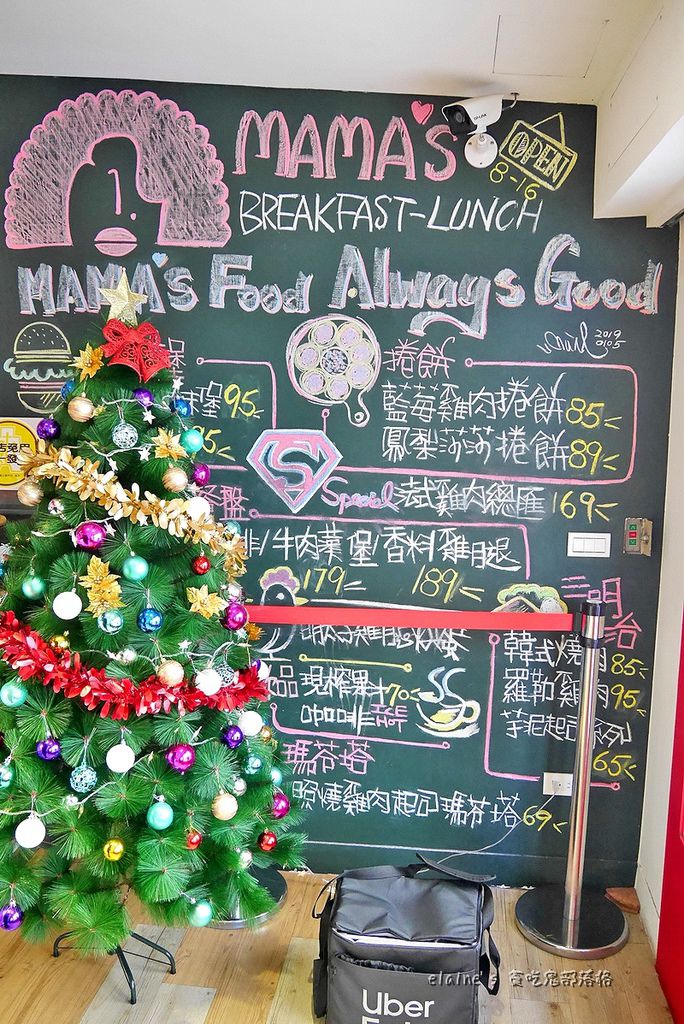 MAMA'S
OPEN
8-16
BREAKFAST-LUNCH
MAMA'S Food Always Good
2019
0105
堡
堡 95
85
捲餅
藍莓雞肉捲餅 85
鳳梨莎莎捲餅 89
S Special 法式雞肉總匯 169
盤
排/牛肉葉堡/香料雞腿
179 189
三明治
韓式燒肉 85
羅勒雞肉 95
芋泥起司系列
65
品 現榨果汁 70
咖啡 ICE HOT
瑪芬塔
照燒雞肉起司瑪芬塔 69
Uber
elaine's 貪吃鬼部落格